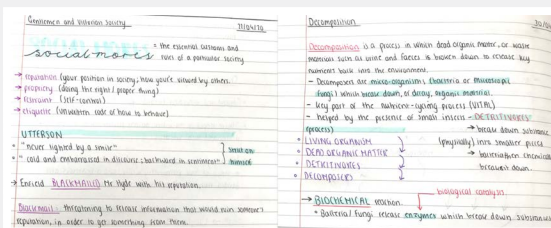 Gentlemen and Victorian Society
social mores = the essential customs and
rules of a particular society
→ reputation (your position in society, how you're viewed by others.
→ propriety (doing the right / proper thing)
→ restraint (self-control)
→ etiquette (unwritten code of how to behave)
UTTERSON
• "never lighted by a smile"
• "cold and embarrassed in discourse; backward in sentiment"
→ Enfield BLACKMAILED Mr Hyde with his reputation.
Blackmail: threatening to release information that would ruin someone's
reputation, in order to get something from them.
Decomposition
Decomposition is a process in which dead organic matter, or waste
materials such as urine and faeces is broken down to release key
nutrients back into the environment.
- Decomposers are micro-organisms (bacteria or
fungi) which break down, or decay, organic material.
- key part of the nutrient-cycling process (VITAL)
- helped by the presence of small insects - DETRITIVORES
process)
→ break down substance
• LIVING ORGANISM
(physically) into smaller pieces
• DEAD ORGANIC MATTER
• DETRITIVORES
• DECOMPOSERS
breakdown.
biological catalysts.
→ BIOCHEMICAL reaction.
• Bacteria/fungi release enzymes which break down substances